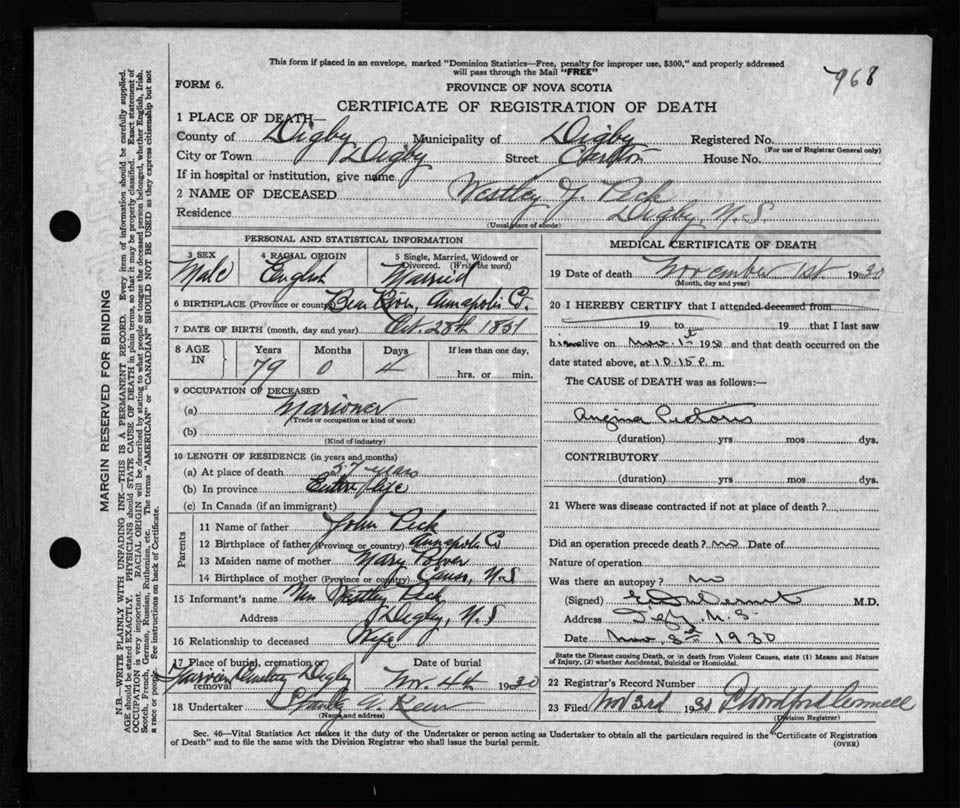 This form if placed in an envelope, marked "Dominion Statistics—Free, penalty for improper use, $300," and properly addressed
will pass through the Mail "FREE"
968
FORM 6.
PROVINCE OF NOVA SCOTIA
CERTIFICATE OF REGISTRATION OF DEATH
1 PLACE OF DEATH—
County of Digby Municipality of Digby Registered No.
(For use of Registrar General only)
City or Town Digby Street Carlton House No.
If in hospital or institution, give name
2 NAME OF DECEASED Westley J. Peck
Residence Digby, N.S
(Usual place of abode)
PERSONAL AND STATISTICAL INFORMATION
3 SEX Male
4 RACIAL ORIGIN English
5 Single, Married, Widowed or Divorced. (Write the word) Married
6 BIRTHPLACE (Province or county) Bear River, Annapolis Co.
7 DATE OF BIRTH (month, day and year) Oct. 28th 1851
8 AGE IN
Years Months Days If less than one day,
79 0 4 hrs. or min.
9 OCCUPATION OF DECEASED
(a) Marioner
(Trade or occupation or kind of work)
(b)
(Kind of industry)
10 LENGTH OF RESIDENCE (in years and months)
(a) At place of death 57 years
(b) In province Entire life
(c) In Canada (if an immigrant)
Parents
11 Name of father John Peck
12 Birthplace of father (Province or country) Annapolis Co
13 Maiden name of mother Mary
14 Birthplace of mother (Province or country) Canso, N.S
15 Informant's name Mrs Westley Peck
Address Digby, N.S
16 Relationship to deceased Wife
17 Place of burial, cremation or removal Digby
Date of burial Nov. 4th 1930
18 Undertaker
(Name and address)
MEDICAL CERTIFICATE OF DEATH
19 Date of death November 1st 1930
(Month, day and year)
20 I HEREBY CERTIFY that I attended deceased from
19 to 19 that I last saw
him alive on Nov. 1st 1930 and that death occurred on the
date stated above, at 10.15 P. m.
The CAUSE of DEATH was as follows:
Angina Pectoris
(duration) yrs mos dys.
CONTRIBUTORY
(duration) yrs mos dys.
21 Where was disease contracted if not at place of death?
Did an operation precede death? no Date of
Nature of operation
Was there an autopsy? no
(Signed) M.D.
Address N.S
Date Nov. 3rd 1930
State the Disease causing Death, or in death from Violent Causes, state (1) Means and Nature of Injury, (2) whether Accidental, Suicidal or Homicidal.
22 Registrar's Record Number
23 Filed Nov 3rd 1930
(Division Registrar)
Sec. 46—Vital Statistics Act makes it the duty of the Undertaker or person acting as Undertaker to obtain all the particulars required in the "Certificate of Registration
of Death" and to file the same with the Division Registrar who shall issue the burial permit.
(OVER)
MARGIN RESERVED FOR BINDING
N.B.—WRITE PLAINLY WITH UNFADING INK—THIS IS A PERMANENT RECORD. Every item of information should be carefully supplied.
AGE should be stated EXACTLY. PHYSICIANS should STATE CAUSE OF DEATH in plain terms, so that it may be properly classified. Exact statement of
OCCUPATION is very important. RACIAL ORIGIN will be described by stating to what people or tongue the deceased person belonged, whether English, Irish,
Scotch, French, German, Russian, Ruthenian, etc. The terms "AMERICAN" or "CANADIAN" SHOULD NOT BE USED as they express citizenship but not
a race or people. See instructions on back of Certificate.